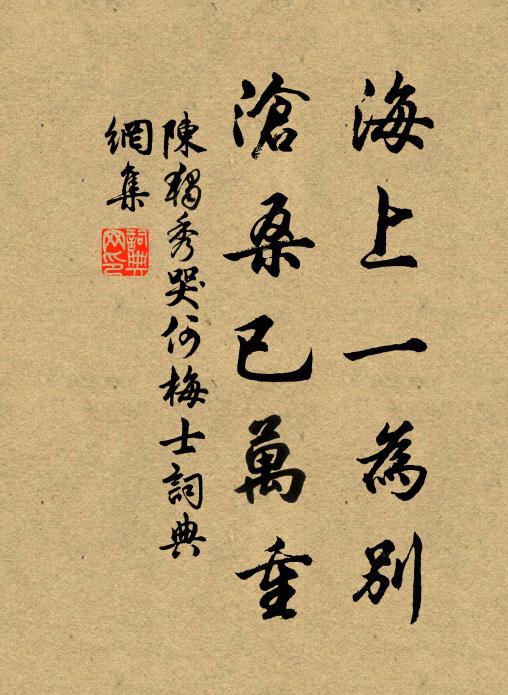 海上一為別
滄桑已萬重
陳獨秀哭何梅士詞典
網集
詞典
網印